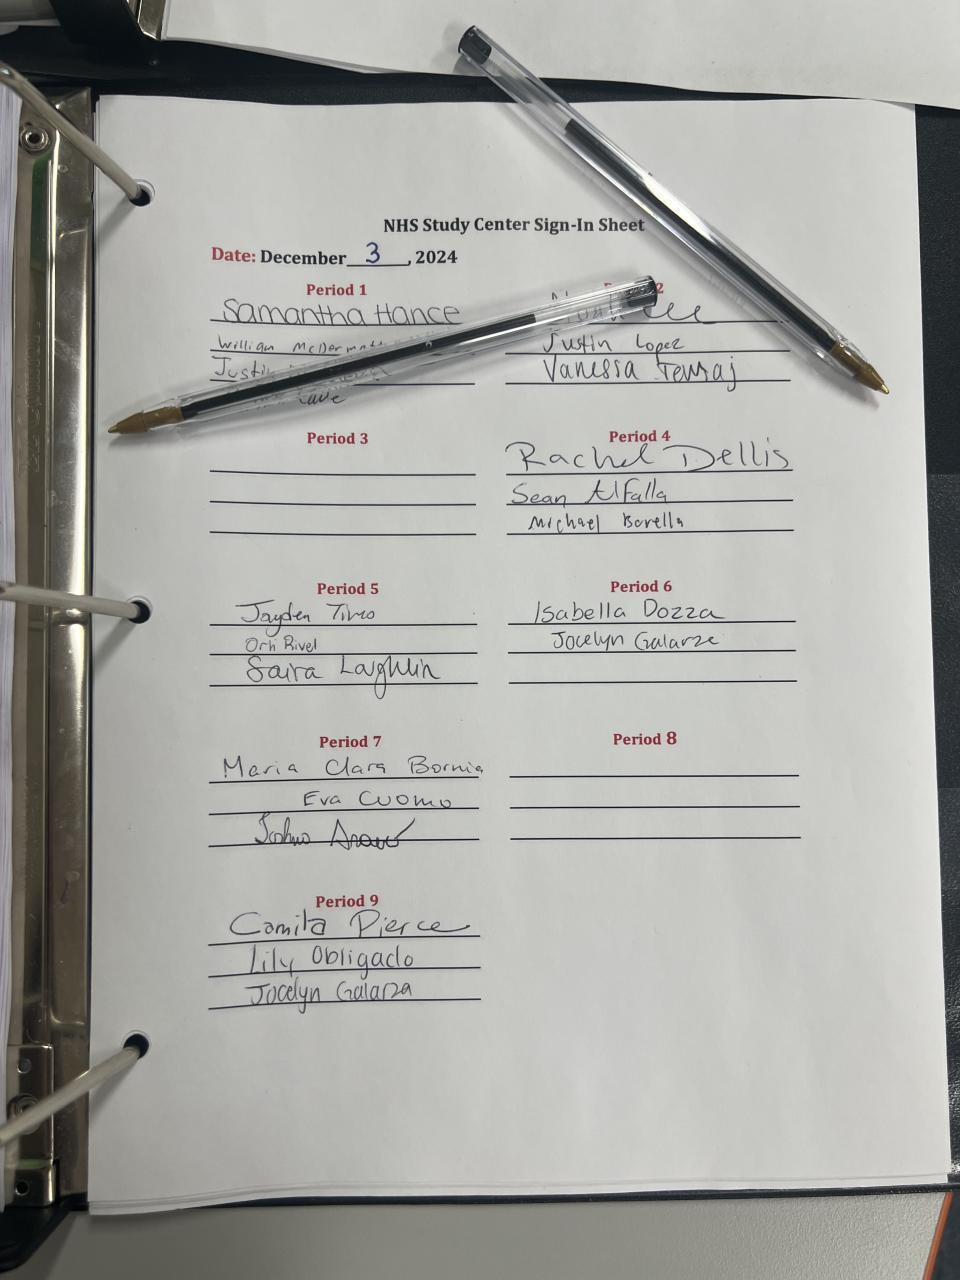 NHS Study Center Sign-In Sheet
Date: December 3, 2024
Period 1
Samantha Hance
William McDermott
Justin
2
Justin Lopez
Vanessa
Period 3
Period 4
Rachel Dellis
Sean Alfalla
Michael Borella
Period 5
Jayden
Saira Laughlin
Period 6
Isabella Dozza
Jocelyn Galarza
Period 7
Maria Clara Bornia
Eva Cuomo
Period 8
Period 9
Camila Pierce
Lily Obligado
Jocelyn Galarza